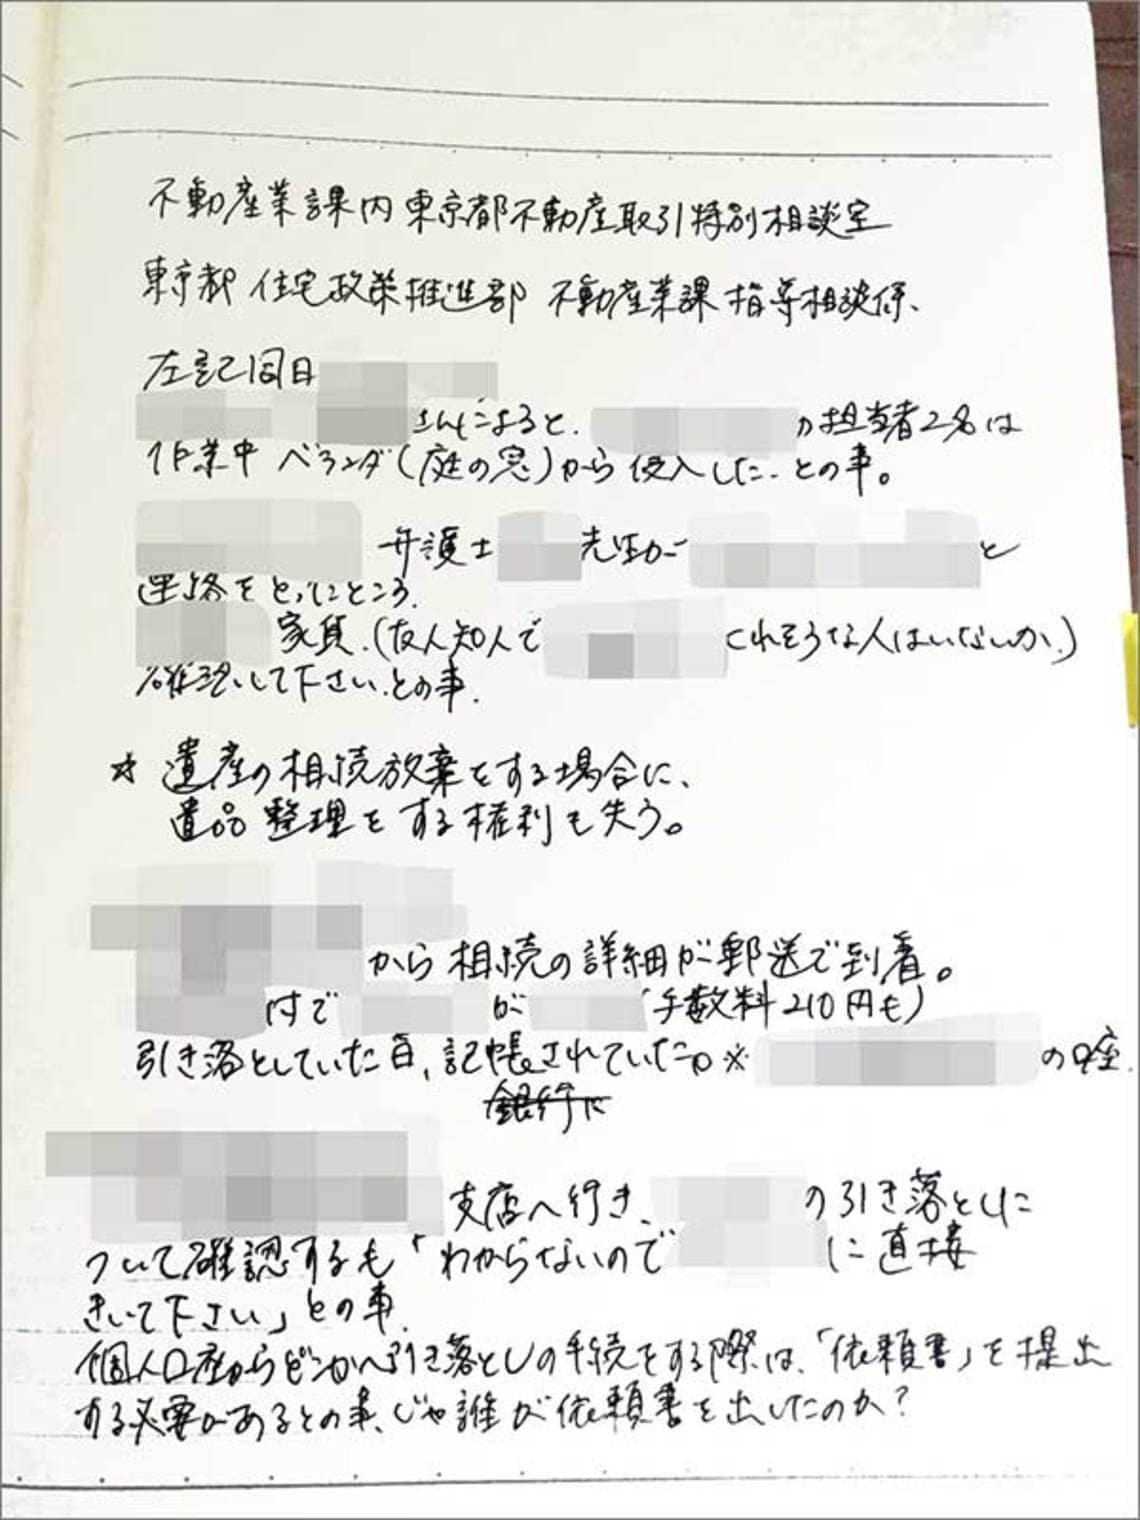 不動産業課内東京都不動産取引特別相談室
東京都 住宅政策推進部 不動産業課 指導相談係、
左記同日
さんによると、の担当者2名は
作業中 ベランダ(庭の窓)から侵入した、との事。
弁護士 先生が と
連絡をとったところ、
家賃、(友人知人で くれそうな人はいないか、)
確認して下さい、との事。
☆ 遺産の相続放棄をする場合に、
遺品整理をする権利も失う。
から相続の詳細が郵送で到着。
付で が (手数料210円も)
引き落としていた旨、記帳されていた。※ の口座
銀行に
支店へ行き、 の引き落としに
ついて確認するも「わからないので に直接
きいて下さい」との事。
個人口座からどこかへ引き落としの手続をする際は、「依頼書」を提出
する必要があるとの事、じゃ誰が依頼書を出したのか?